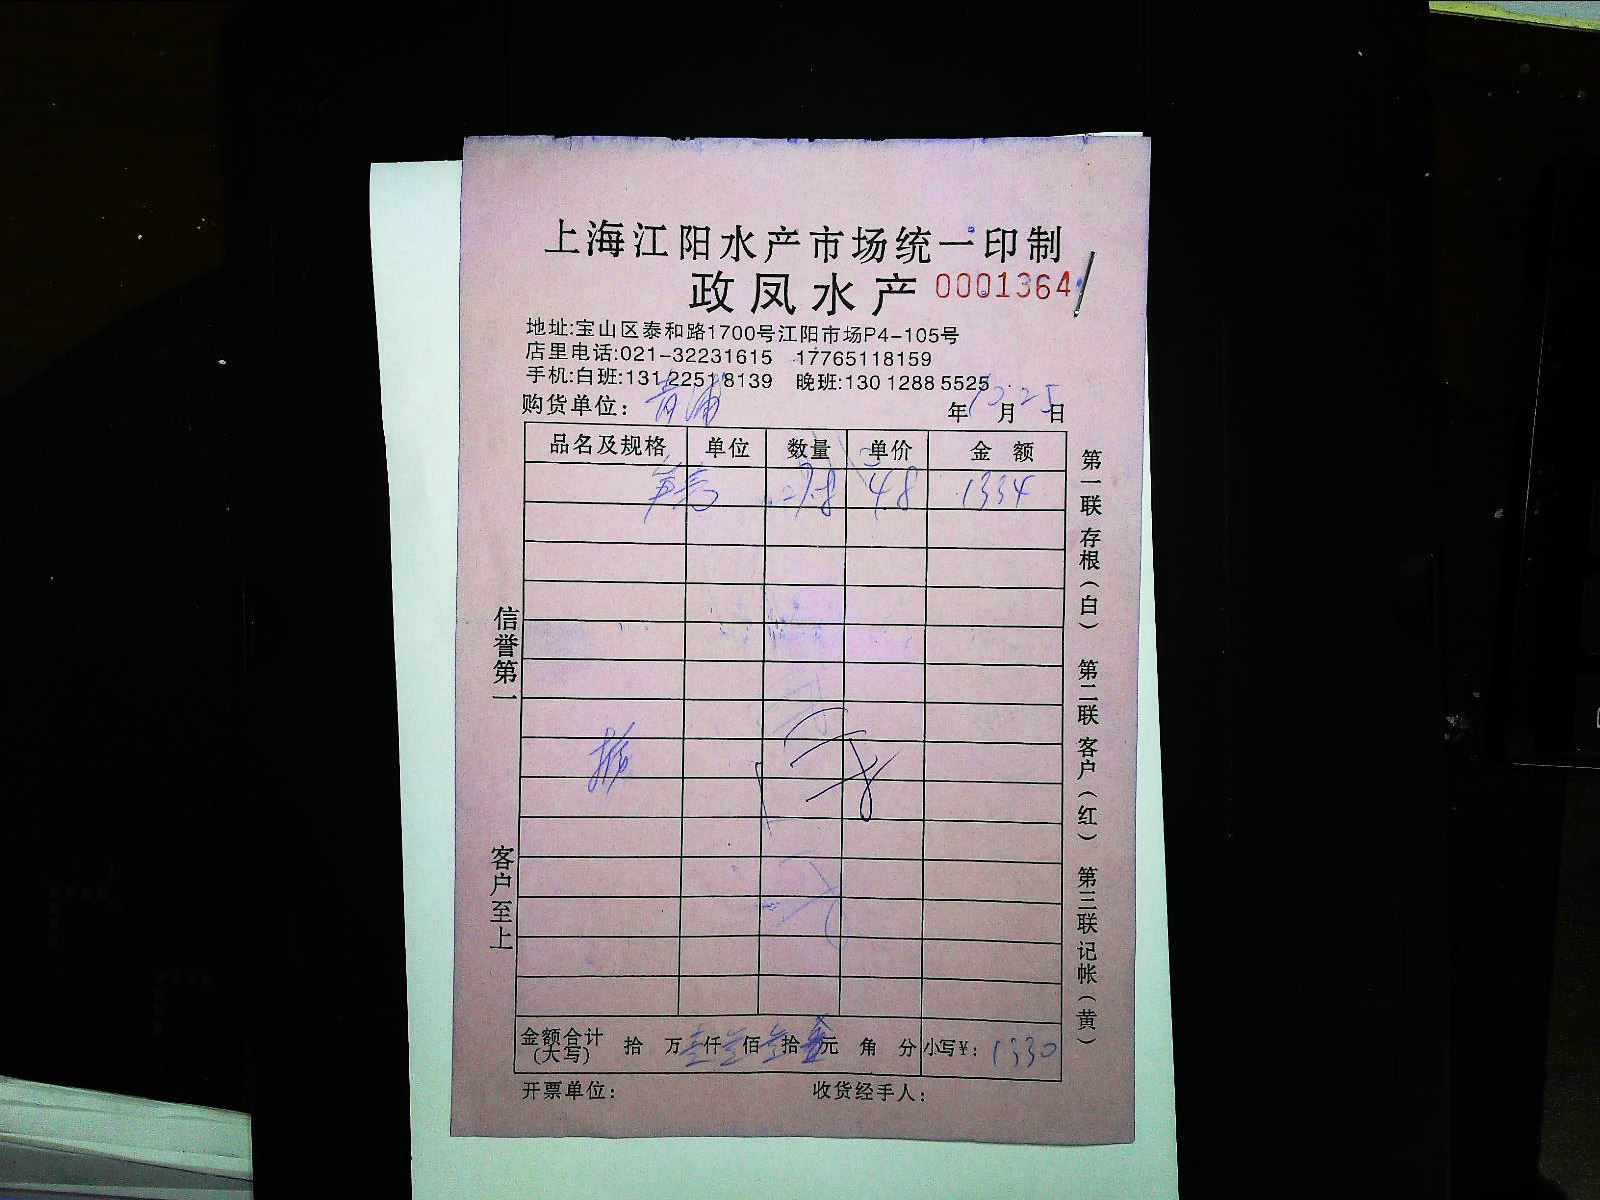 上海江阳水产市场统一印制
政凤水产 0001364
地址:宝山区泰和路1700号江阳市场P4-105号
店里电话:021-32231615 17765118159
手机:白班:13122518139 晚班:13012885525
购货单位: 青浦 年 月 25 日
品名及规格 单位 数量 单价 金额
27.8 48 1334
信誉第一
客户至上
第一联 存根(白) 第二联 客户(红) 第三联 记帐(黄)
金额合计(大写) 拾 万 壹 仟 叁 佰 叁 拾 元 角 分 小写¥: 1330
开票单位: 收货经手人: